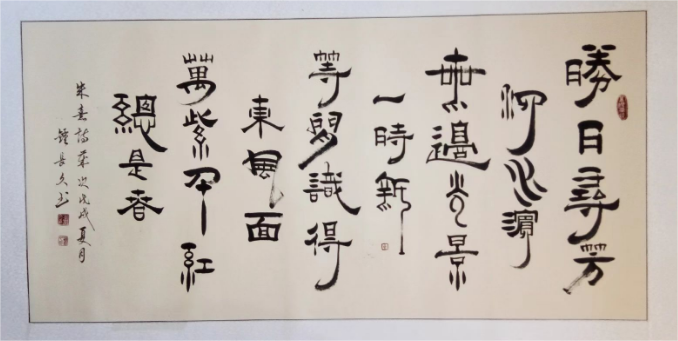 勝日尋芳
泗水濱
無邊光景
一時新
等閒識得
東風面
萬紫千紅
總是春
朱熹詩歲次戊戌夏月
長久书